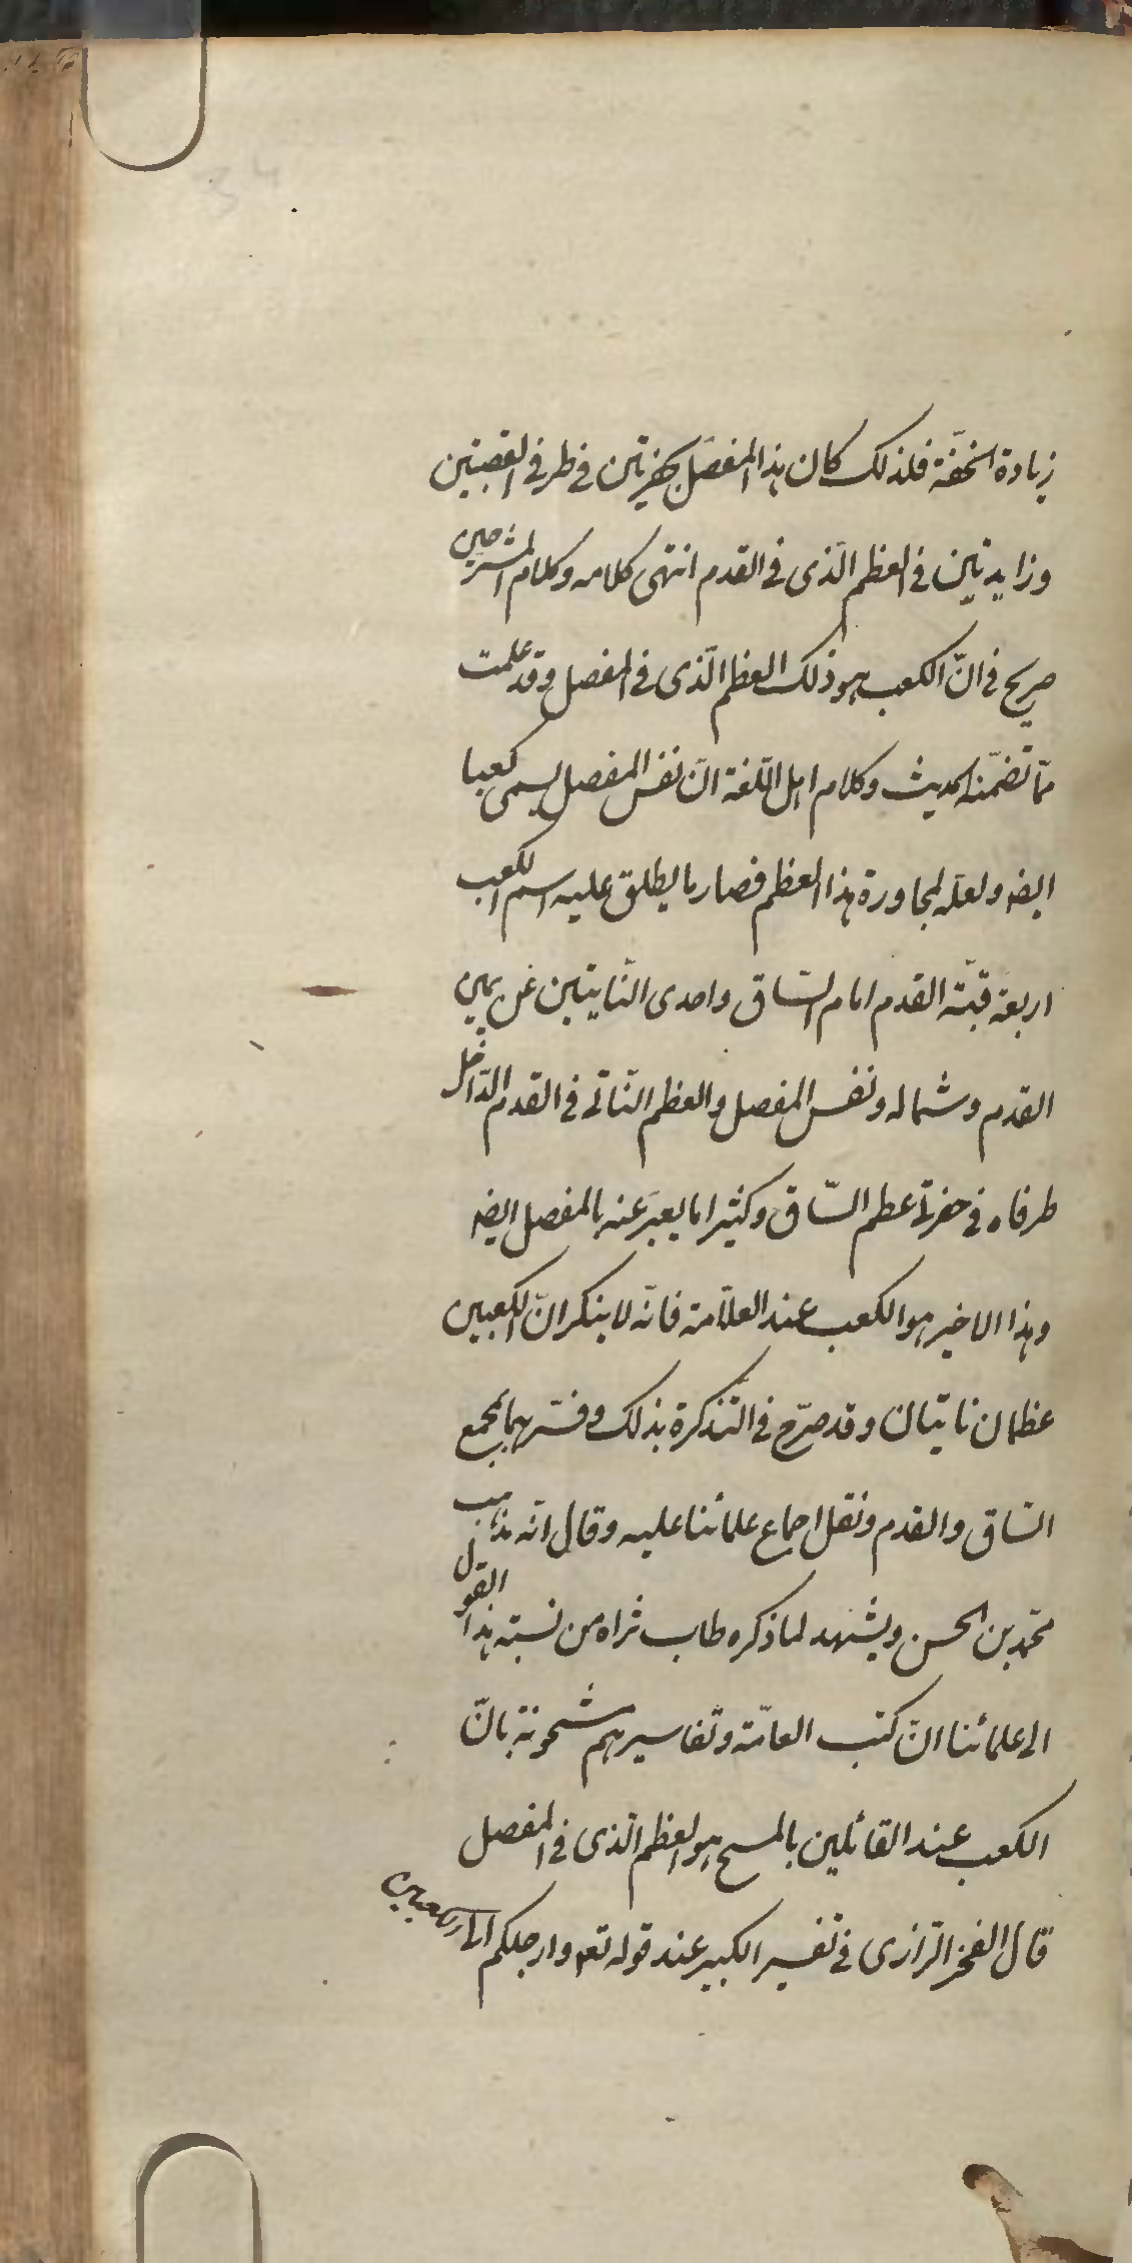 زيادة الخفّة فلذلك كان هذا المفصل بحفرتين في طرفي القصبتين
وزايدتين في العظم الّذى في القدم انتهى كلامه وكلام المشرحين
صريح في انّ الكعب هو ذلك العظم الّذى في المفصل وقد علمت
ممّا تضمّنه الحديث وكلام اهل اللّغة انّ نفس المفصل يسمى كعبا
ايضه ولعلّه لمجاورة هذا العظم فصار ما يطلق عليه اسم الكعب
اربعة قبّة القدم امام السّاق واحدى النّاتيتين عن يمين
القدم وشماله ونفس المفصل والعظم النّاتى في القدم الدّاخل
طرفاه في حفرتى عظم السّاق وكثيرا ما يعبّر عنه بالمفصل ايضه
وهذا الاخير هو الكعب عند العلّامة فانّه لا ينكر انّ الكعبين
عظمان ناتيان وقد صرّح في التذكرة بذلك وفسّرهما بمجمع
السّاق والقدم ونقل اجماع علمائنا عليه وقال انّه مذهب
محمّد بن الحسن ويشهد لما ذكره طاب ثراه من نسبته هذا القول
الى علمائنا انّ كتب العامّة وتفاسيرهم مشحونة بانّ
الكعب عند القائلين بالمسح هو العظم الّذى في المفصل
قال الفخر الرّازى في تفسير الكبير عند قوله تعه وارجلكم الى الكعبين